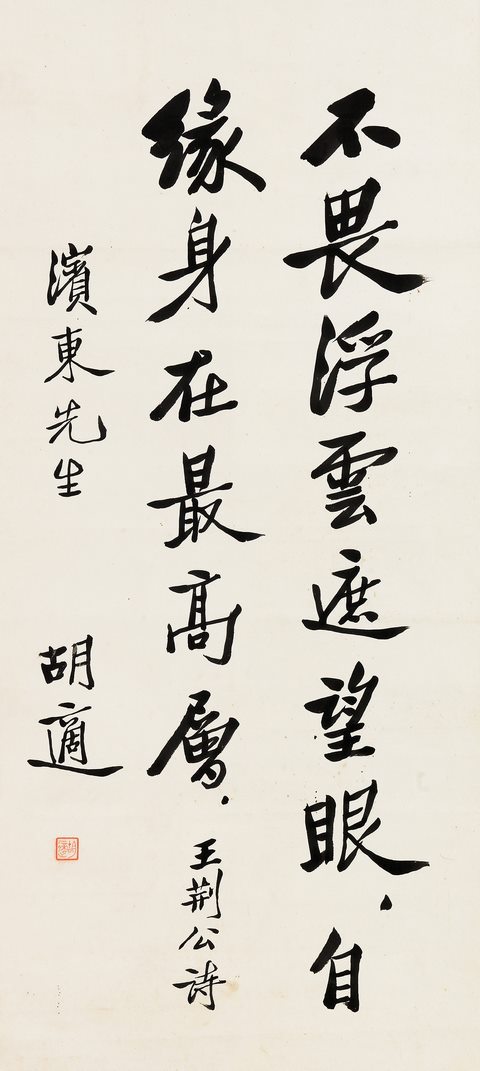 不畏浮雲遮望眼，自
緣身在最高層．王荆公詩
濱東先生
胡適